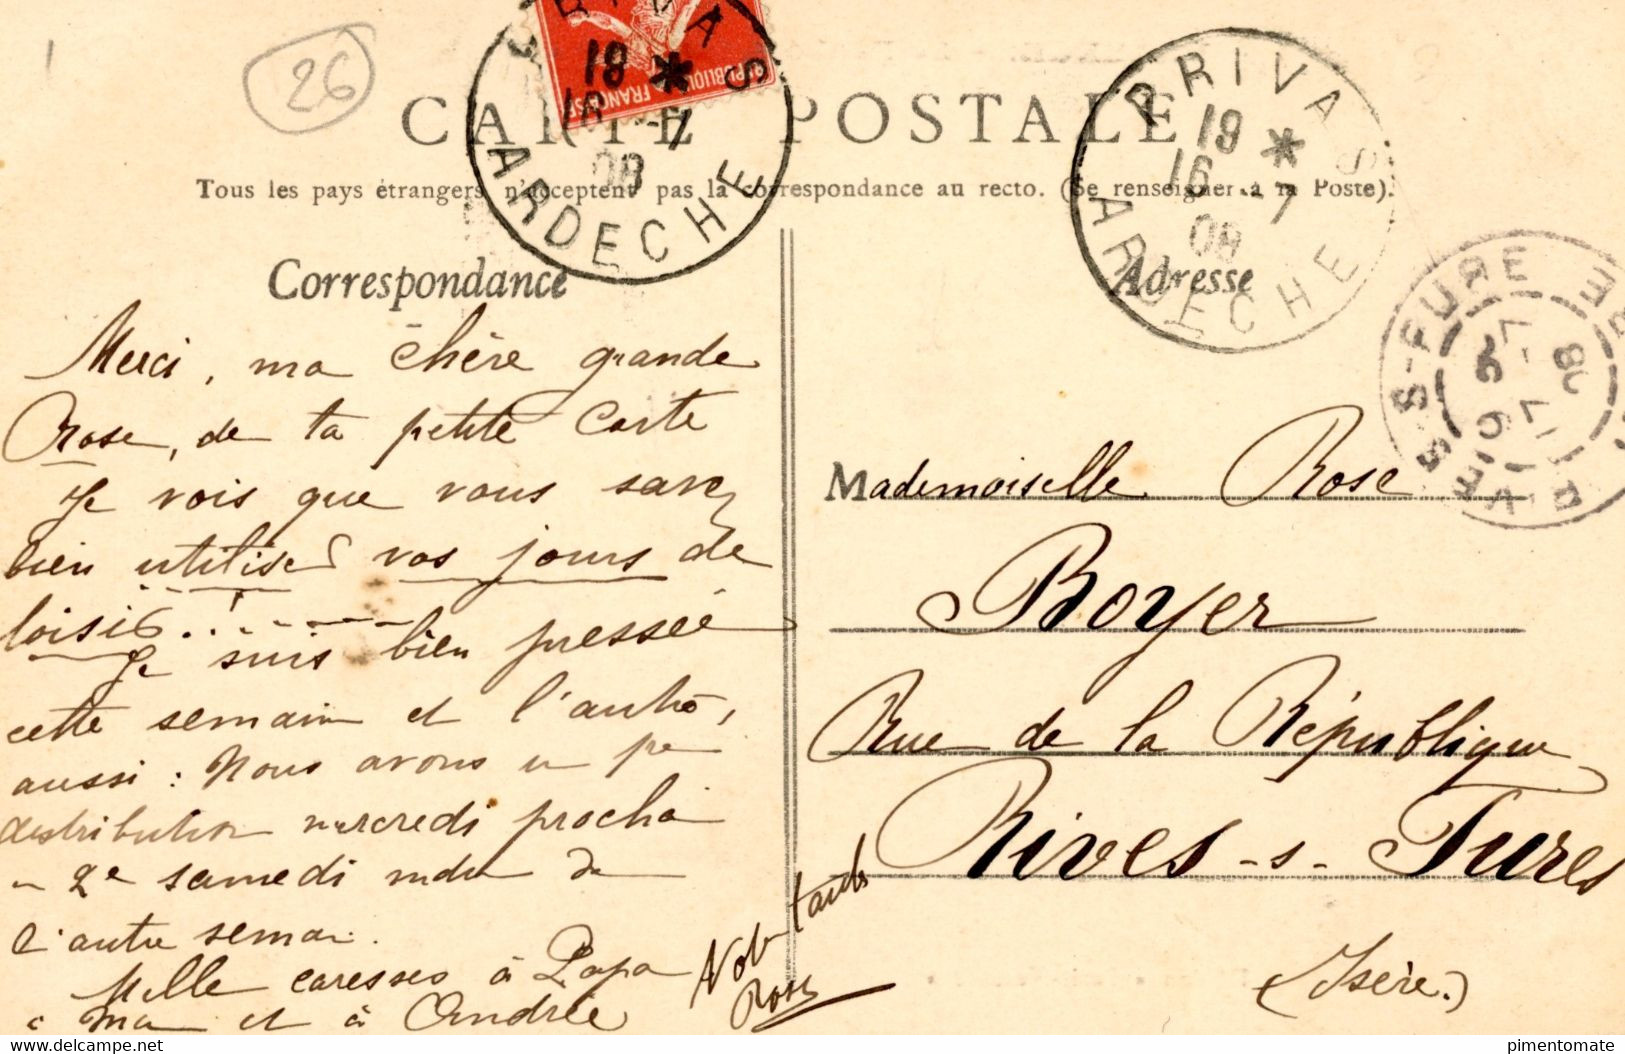 26
CARTE POSTALE
Tous les pays étrangers n'acceptent pas la correspondance au recto. (Se renseigner à la Poste).
RÉPUBLIQUE FRANÇAISE
PRIVAS
18 *
16 -7
08
ARDECHE
PRIVAS
18 *
16 -7
08
ARDECHE
RIVES-S-FURE
17 -7
08
Correspondance
Merci, ma chère grande
Rose, de ta petite carte
Je vois que vous savez
bien utiliser vos jours de
loisir....
Je suis bien pressée
cette semaine et l'autre,
aussi : Nous avons un
distribution mercredi
2e samedi
l'autre
Mille caresses à Papa
et à Andrée
Votre tante
Rose
Adresse
Mademoiselle Rose
Boyer
Rue de la République
Rives-s-Fures
(Isère.)
https://www.delcampe.net
pimentomate